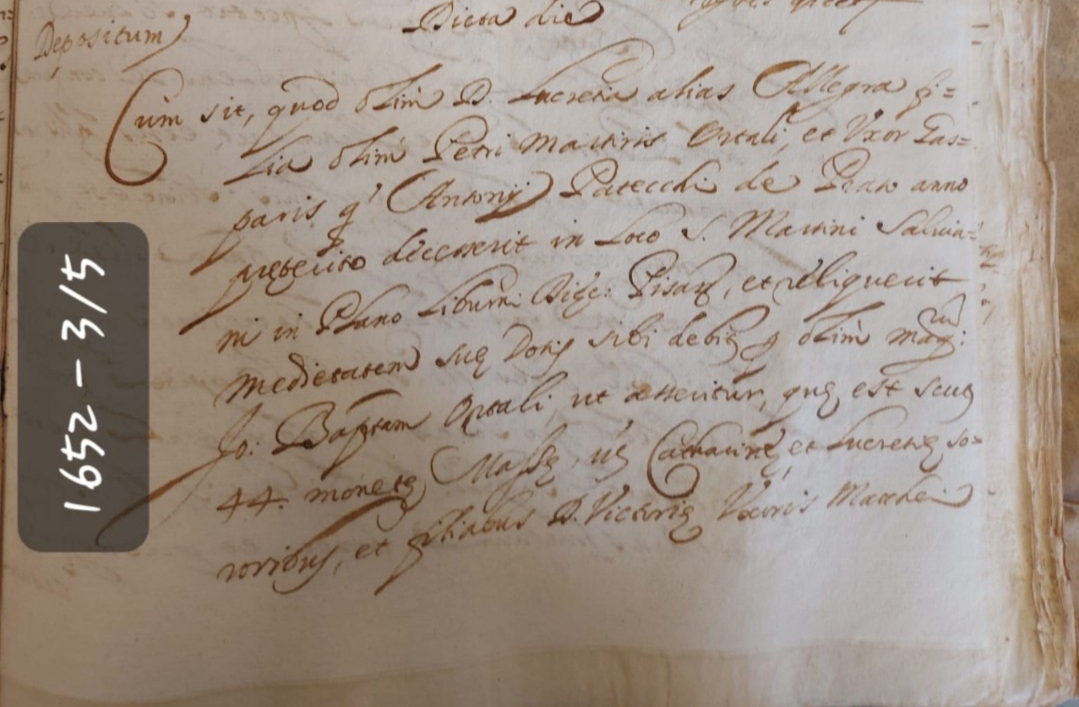 Dicta die
Depositum
Cum sit, quod olim D. Lucretia alias Allegra fi=
lia olim Petri Martiris Ortali, et Uxor Gas=
paris q. Antonij Patecchi de Prato anno
pręterito decesserit in Loco S. Martini Salvia=
ni in Plano Liburni Dięc: Pisarū, et reliquerit
medietatem suę Dotis sibi debitę p olim mag:
Jo: Baptam Ortali, ut asseritur, quę est scut
44. monetę Massę, ijs Catharinę, et Lucretię so=
roribus, et filiabus D. Victorię Uxoris Matthei
1652-3/5